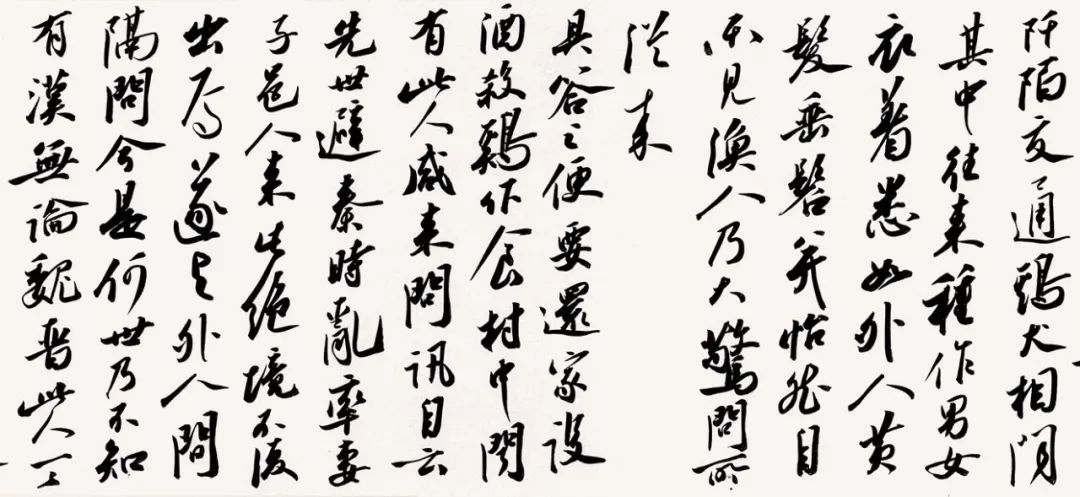 阡陌交通鷄犬相聞
其中往来種作男女
衣着悉如外人黄
髮垂髫并怡然自
乐見漁人乃大驚問所
從来
具答之便要還家設
酒殺鷄作食村中聞
有此人咸来問訊自云
先世避秦時亂率妻
子邑人来此絶境不復
出焉遂与外人間
隔問今是何世乃不知
有漢無論魏晋此人一一